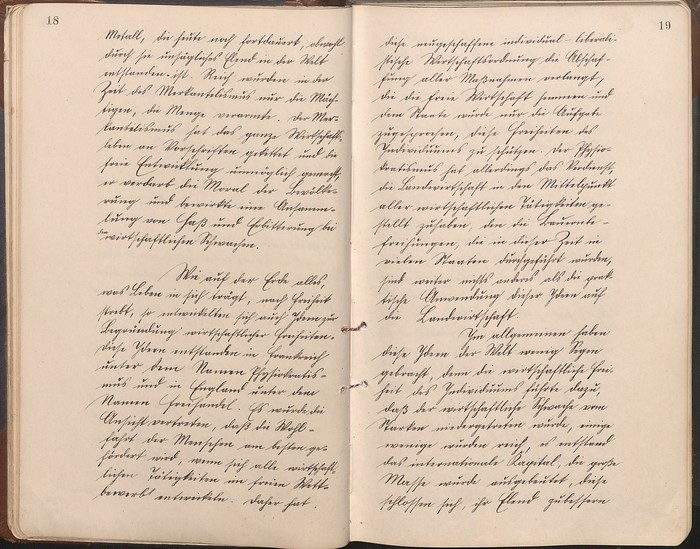 18
Metall, die heute noch fortdauert, obwohl
durch sie unsägliches Elend in der Welt
entstanden ist. Reich wurden in der
Zeit des Merkantelismus nur die Mäch-
tigen, die Menge verarmte. Der Mer-
kantelismus hat das ganze Wirtschafts-
leben an Vorschriften gekettet und die
freie Entwicklung unmöglich gemacht,
er verdarb die Moral der Bevölke-
rung und bewirkte eine Ansamm-
lung von Haß und Erbitterung bei
wirtschaftlichen Schwachen.
Wie auf der Erde alles,
was Leben in sich trägt, nach Freiheit
strebt, so entwickelten sich auch Ideen zur
Begründung wirtschaftlicher Freiheiten.
Diese Ideen entstanden in Frankreich
unter dem Namen Physiokratis-
mus und in England unter dem
Namen Freihandel. Es wurde die
Ansicht vertreten, daß die Wohl-
fahrt der Menschen am besten ge-
fördert wird, wenn sich alle wirtschaft-
lichen Tätigkeiten im freien Wett-
bewerb entwickeln. Daher hat
19
diese neugeschaffene individual-liberali-
stische Wirtschaftsordnung die Abschaf-
fung aller Maßnahmen verlangt,
die die freie Wirtschaft hemmen und
dem Staate wurde nur die Aufgabe
zugesprochen, diese Freiheiten des
Individuums zu schützen. Der Physio-
kratismus hat allerdings das Verdienst,
die Landwirtschaft in den Mittelpunkt
aller wirtschaftlichen Tätigkeiten ge-
stellt zuhaben, den die Bauernbe-
freihungen, die in dieser Zeit in
vielen Staaten durchgeführt wurden,
sind weiter nichts anders als die prak-
tische Anwendung dieser Ideen auf
die Landwirtschaft.
Im allgemeinen haben
diese Ideen der Welt wenig Segen
gebracht, denn die wirtschaftliche Frei-
heit des Individuums führte dazu,
daß der wirtschaftliche Schwache vom
Starken niedergetreten wurde, einige
wenige wurden reich, es entstand
das internationale Kapital, die große
Masse wurde ausgebeutet, diese
schlossen sich, ihr Elend zubessern